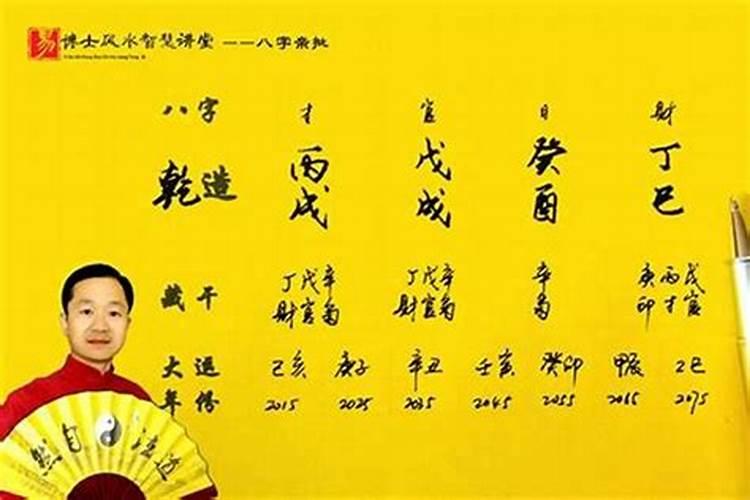 易 博士风水智慧讲堂 ——八字亲批
八字 才 官 日 财
乾造 丙 戊 癸 丁
戌 戌 酉 巳
藏干 丁戊辛 丁戊辛 辛 庚丙戊
财官枭 财官枭 枭 印才官
大运 己亥 庚子 辛丑 壬寅 癸卯 甲辰 乙巳
年份 2015 2025 2035 2045 2055 2065 2075
道法自然